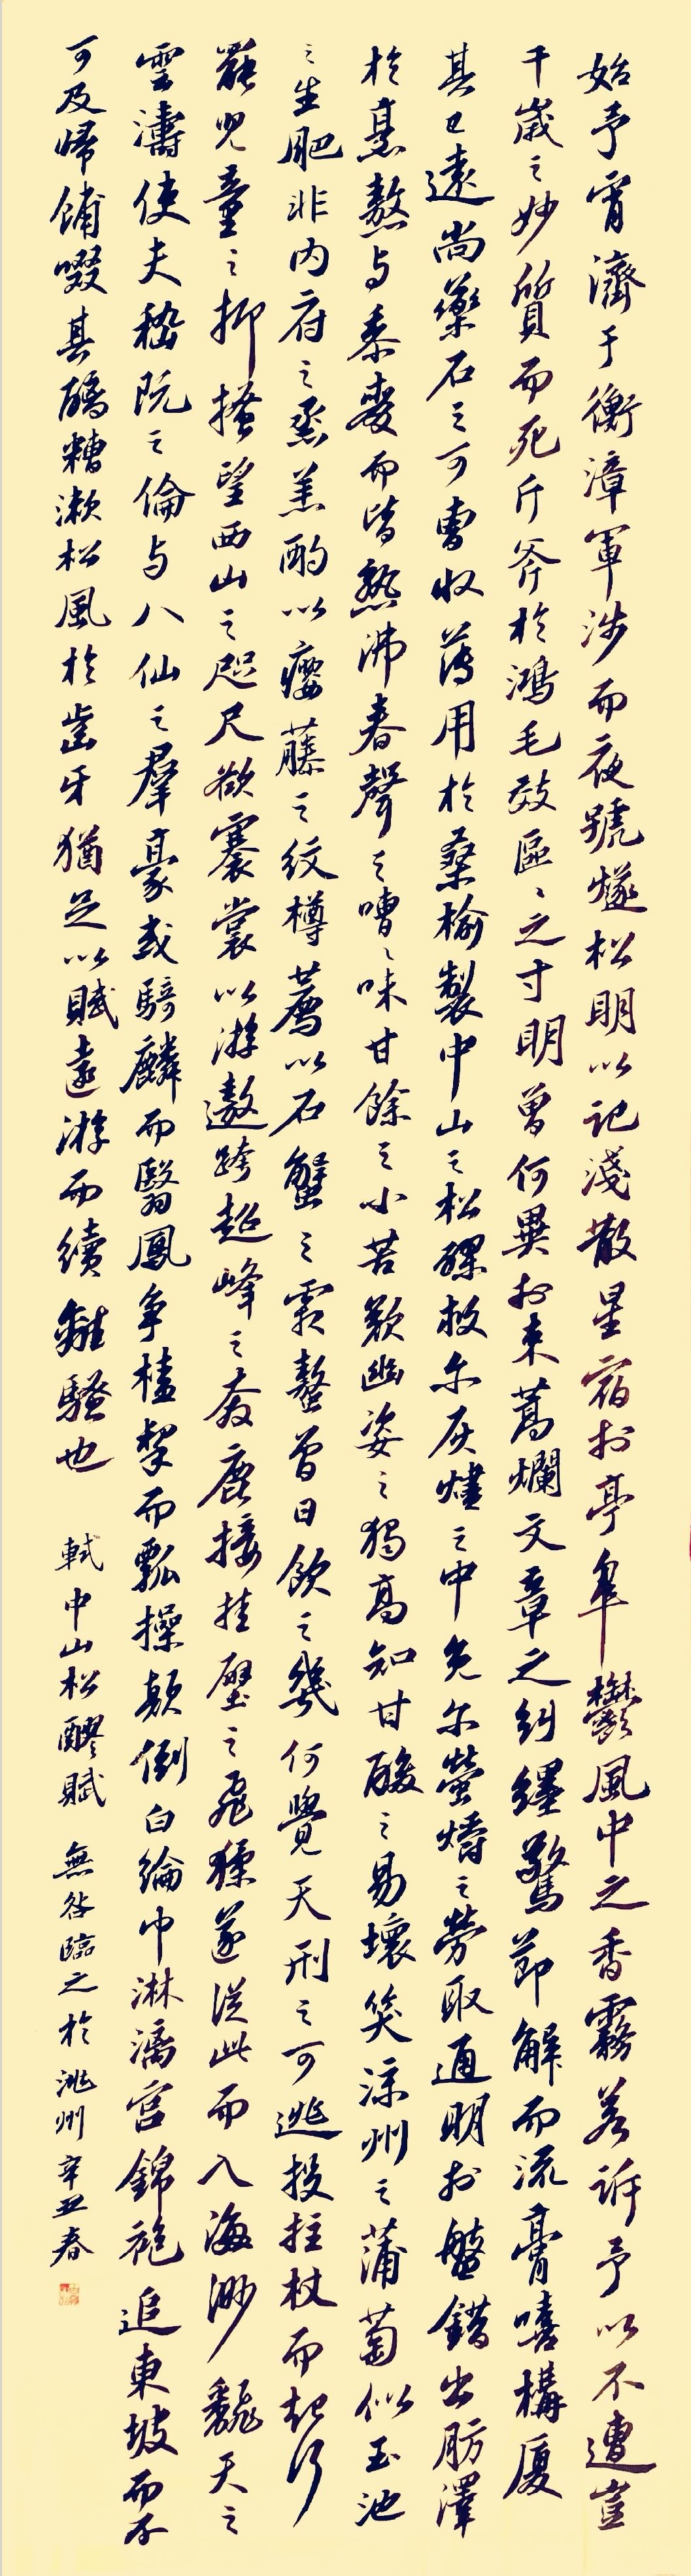 始予宵濟于衡漳軍涉而夜號燧松明以記淺散星宿於亭皋鬱風中之香霧若訴予以不遭豈
千歲之妙質而死斤斧於鴻毛效區〻之寸明曾何異於束蒿爛文章之糾纏驚節解而流膏嘻構厦
其已遠尚藥石之可曹收薄用於桑榆製中山之松醪救尔灰燼之中免尔螢爝之勞取通明於盤錯出肪澤
於烹熬与黍麥而皆熟沸舂聲之嘈〻味甘餘之小苦歎幽姿之獨高知甘酸之易壞笑涼州之蒲萄似玉池
之生肥非内府之烝羔酌以癭藤之紋樽薦以石蟹之霜螯曾日飲之幾何覺天刑之可逃投拄杖而起行
罷兒童之抑搔望西山之咫尺欲褰裳以游遨跨超峰之奔鹿接挂壁之飛猱遂從此而入海渺飜天之
雲濤使夫嵇阮之倫与八仙之羣豪或騎麟而翳鳳争榼挈而瓢操顛倒白綸巾淋漓宫錦袍追東坡而不
可及歸餔歠其醨糟漱松風於齒牙猶足以賦遠游而續離騷也 軾中山松醪賦 無咎臨之於洮州辛丑春